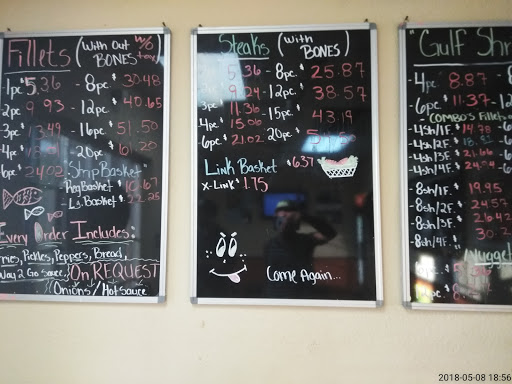 Fillets (With Out BONES)
1pc $5.36 - 8pc. $30.48
2pc 9.93 - 12pc. $40.65
3pc 13.49 - 16pc. $51.50
4pc - 20pc. $61.20
6pc 24.02 Shrimp Basket
Reg Basket $10.67
Lg. Basket $22.25
Every Order Includes:
Fries, Pickles, Peppers, Bread,
Way 2 Go Sauce. On REQUEST
Onions / Hot sauce
Steaks (With BONES)
5.36 - 8pc. $25.87
9.24 - 12pc. $38.57
3pc 11.36 - 15pc. $43.19
4pc 15.06
6pc. 21.02 20pc. $
Link Basket $6.37
X-Link $1.75
Come Again...
"Gulf Shr
-4pc. 8.87 - 8
-6pc. 11.37 - 12
"COMBO'S Fillet
-4sh/1F. $14.78
-4sh/2F.
-4sh/3F. 21.66
-4sh/4F.
-8sh/1F. $19.95
-8sh/2F. $24.57
-8sh/3F. 26.42
-8sh/4F. 30.2
Nugget
2018-05-08 18:56